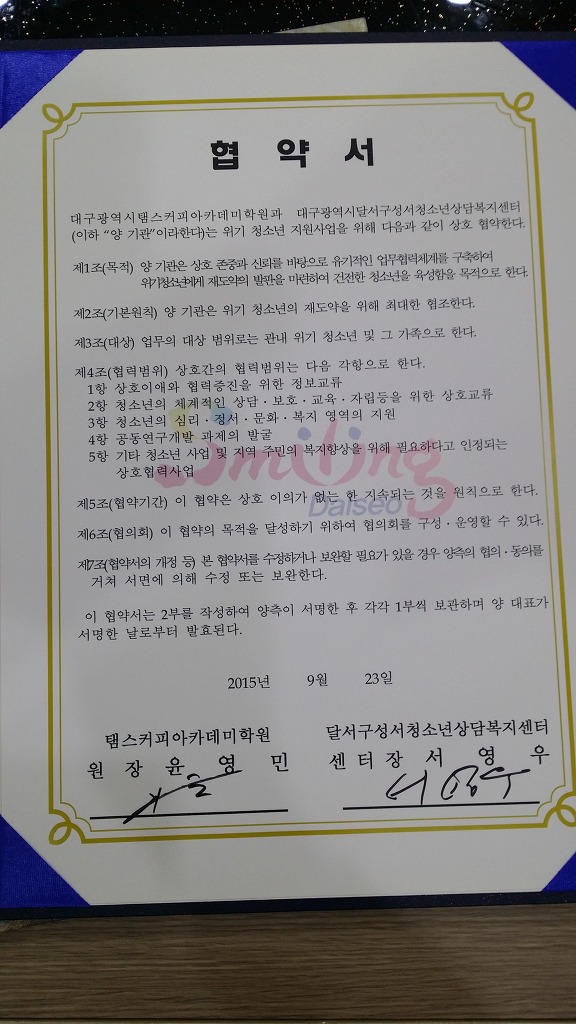 협 약 서
대구광역시탬스커피아카데미학원과 대구광역시달서구성서청소년상담복지센터
(이하 “양 기관”이라한다)는 위기 청소년 지원사업을 위해 다음과 같이 상호 협약한다.
제1조(목적) 양 기관은 상호 존중과 신뢰를 바탕으로 유기적인 업무협력체계를 구축하여
위기청소년에게 재도약의 발판을 마련하여 건전한 청소년을 육성함을 목적으로 한다.
제2조(기본원칙) 양 기관은 위기 청소년의 재도약을 위해 최대한 협조한다.
제3조(대상) 업무의 대상 범위로는 관내 위기 청소년 및 그 가족으로 한다.
제4조(협력범위) 상호간의 협력범위는 다음 각항으로 한다.
1항 상호이애와 협력증진을 위한 정보교류
2항 청소년의 체계적인 상담·보호·교육·자립등을 위한 상호교류
3항 청소년의 심리·정서·문화·복지 영역의 지원
4항 공동연구개발 과제의 발굴
5항 기타 청소년 사업 및 지역 주민의 복지향상을 위해 필요하다고 인정되는
상호협력사업
Smiling
Dalseo
제5조(협약기간) 이 협약은 상호 이의가 없는 한 지속되는 것을 원칙으로 한다.
제6조(협의회) 이 협약의 목적을 달성하기 위하여 협의회를 구성·운영할 수 있다.
제7조(협약서의 개정 등) 본 협약서를 수정하거나 보완할 필요가 있을 경우 양측의 협의·동의를
거쳐 서면에 의해 수정 또는 보완한다.
이 협약서는 2부를 작성하여 양측이 서명한 후 각각 1부씩 보관하며 양 대표가
서명한 날로부터 발효된다.
2015년 9월 23일
탬스커피아카데미학원 달서구성서청소년상담복지센터
원 장 윤 영 민 센 터 장 서 영 우
서영우